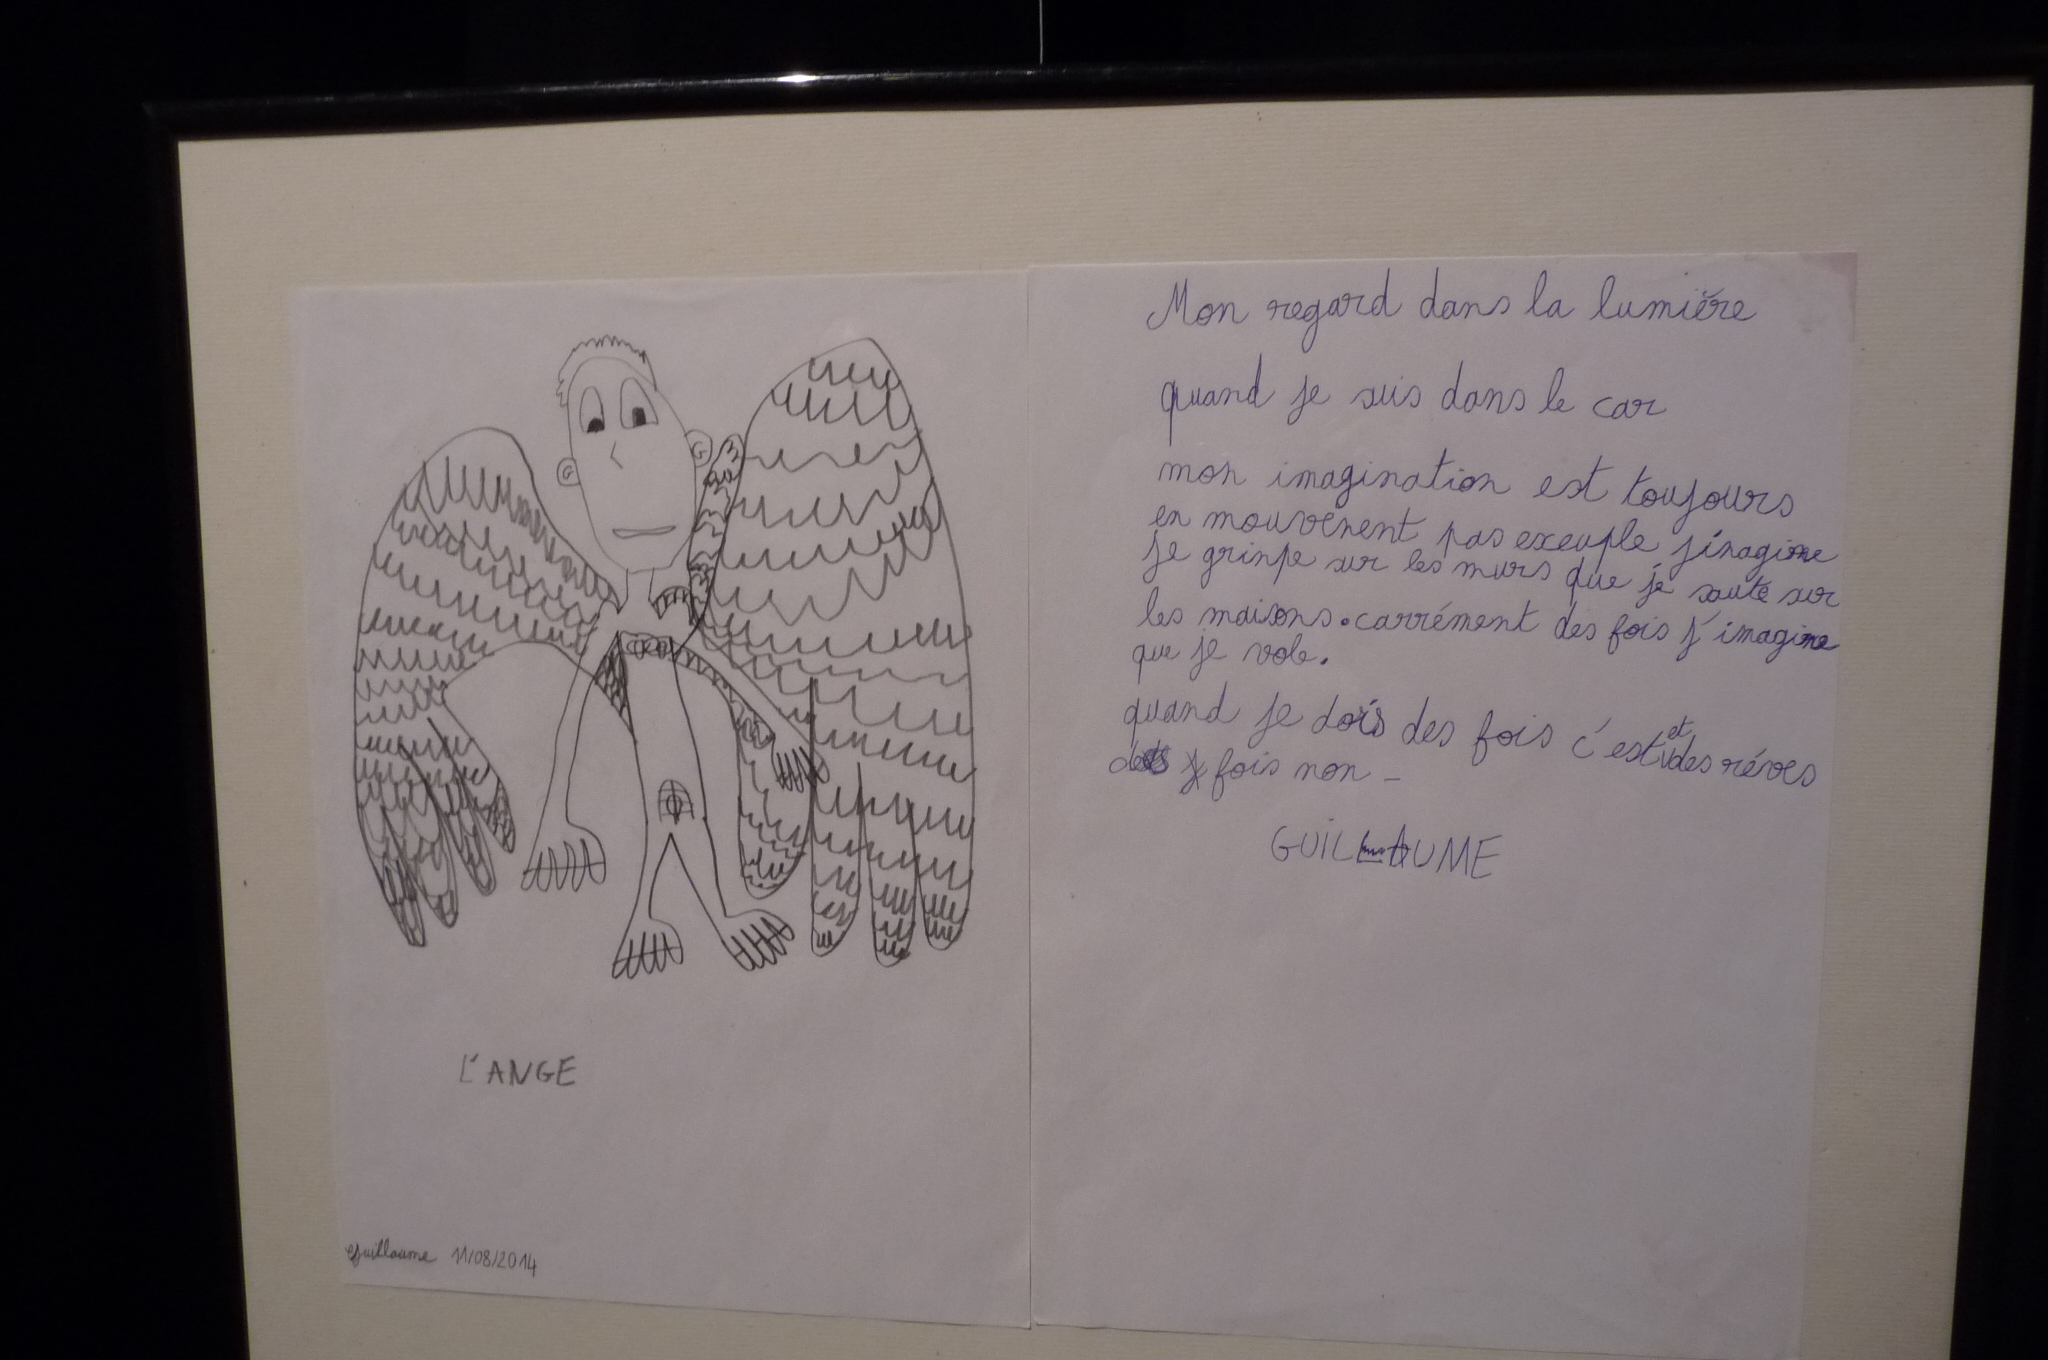 L'ANGE
Guillaume 11/08/2014
Mon regard dans la lumière
quand je suis dans le car
mon imagination est toujours
en mouvenent pas exeuple j'inagine
je grinpe sur les murs que je saute sur
les maisons. carrément des fois j'imagine
que je vole.
quand je dors des fois c'est et des rêves
des fois non -
GUILLAUME